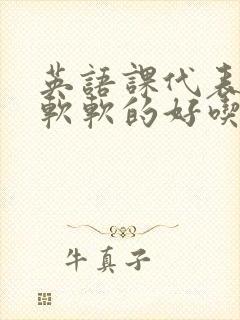 英語課代表
軟軟的好喫
牛真子